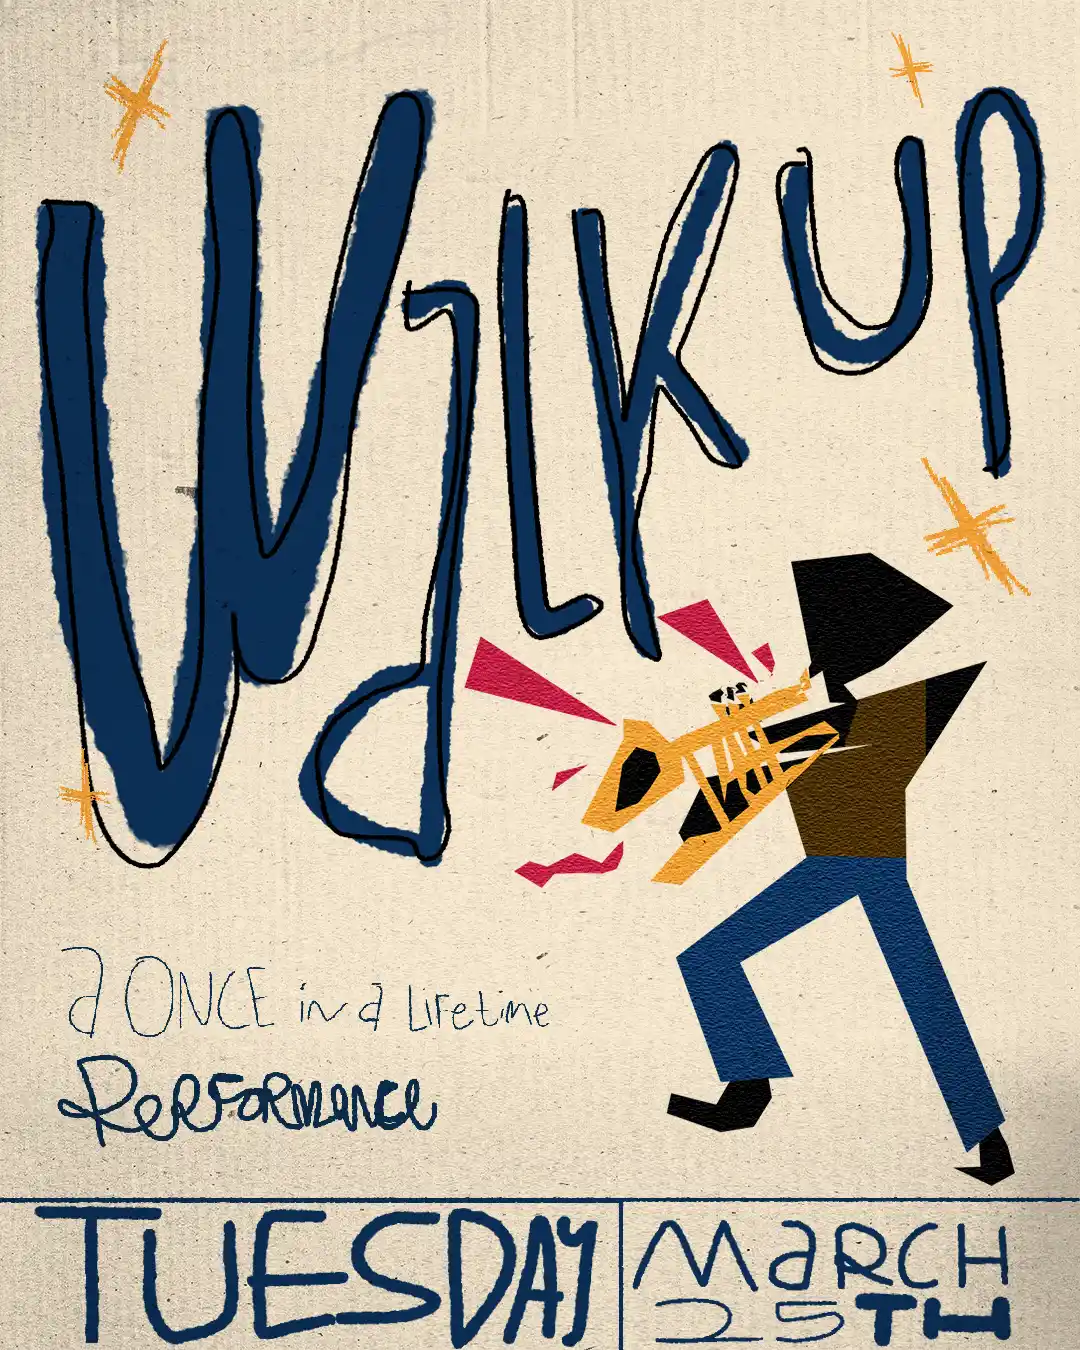 WalK UP
a ONCE in a Lifetime
PeRFORMANCE
TUESDAY
MaRCH
25TH